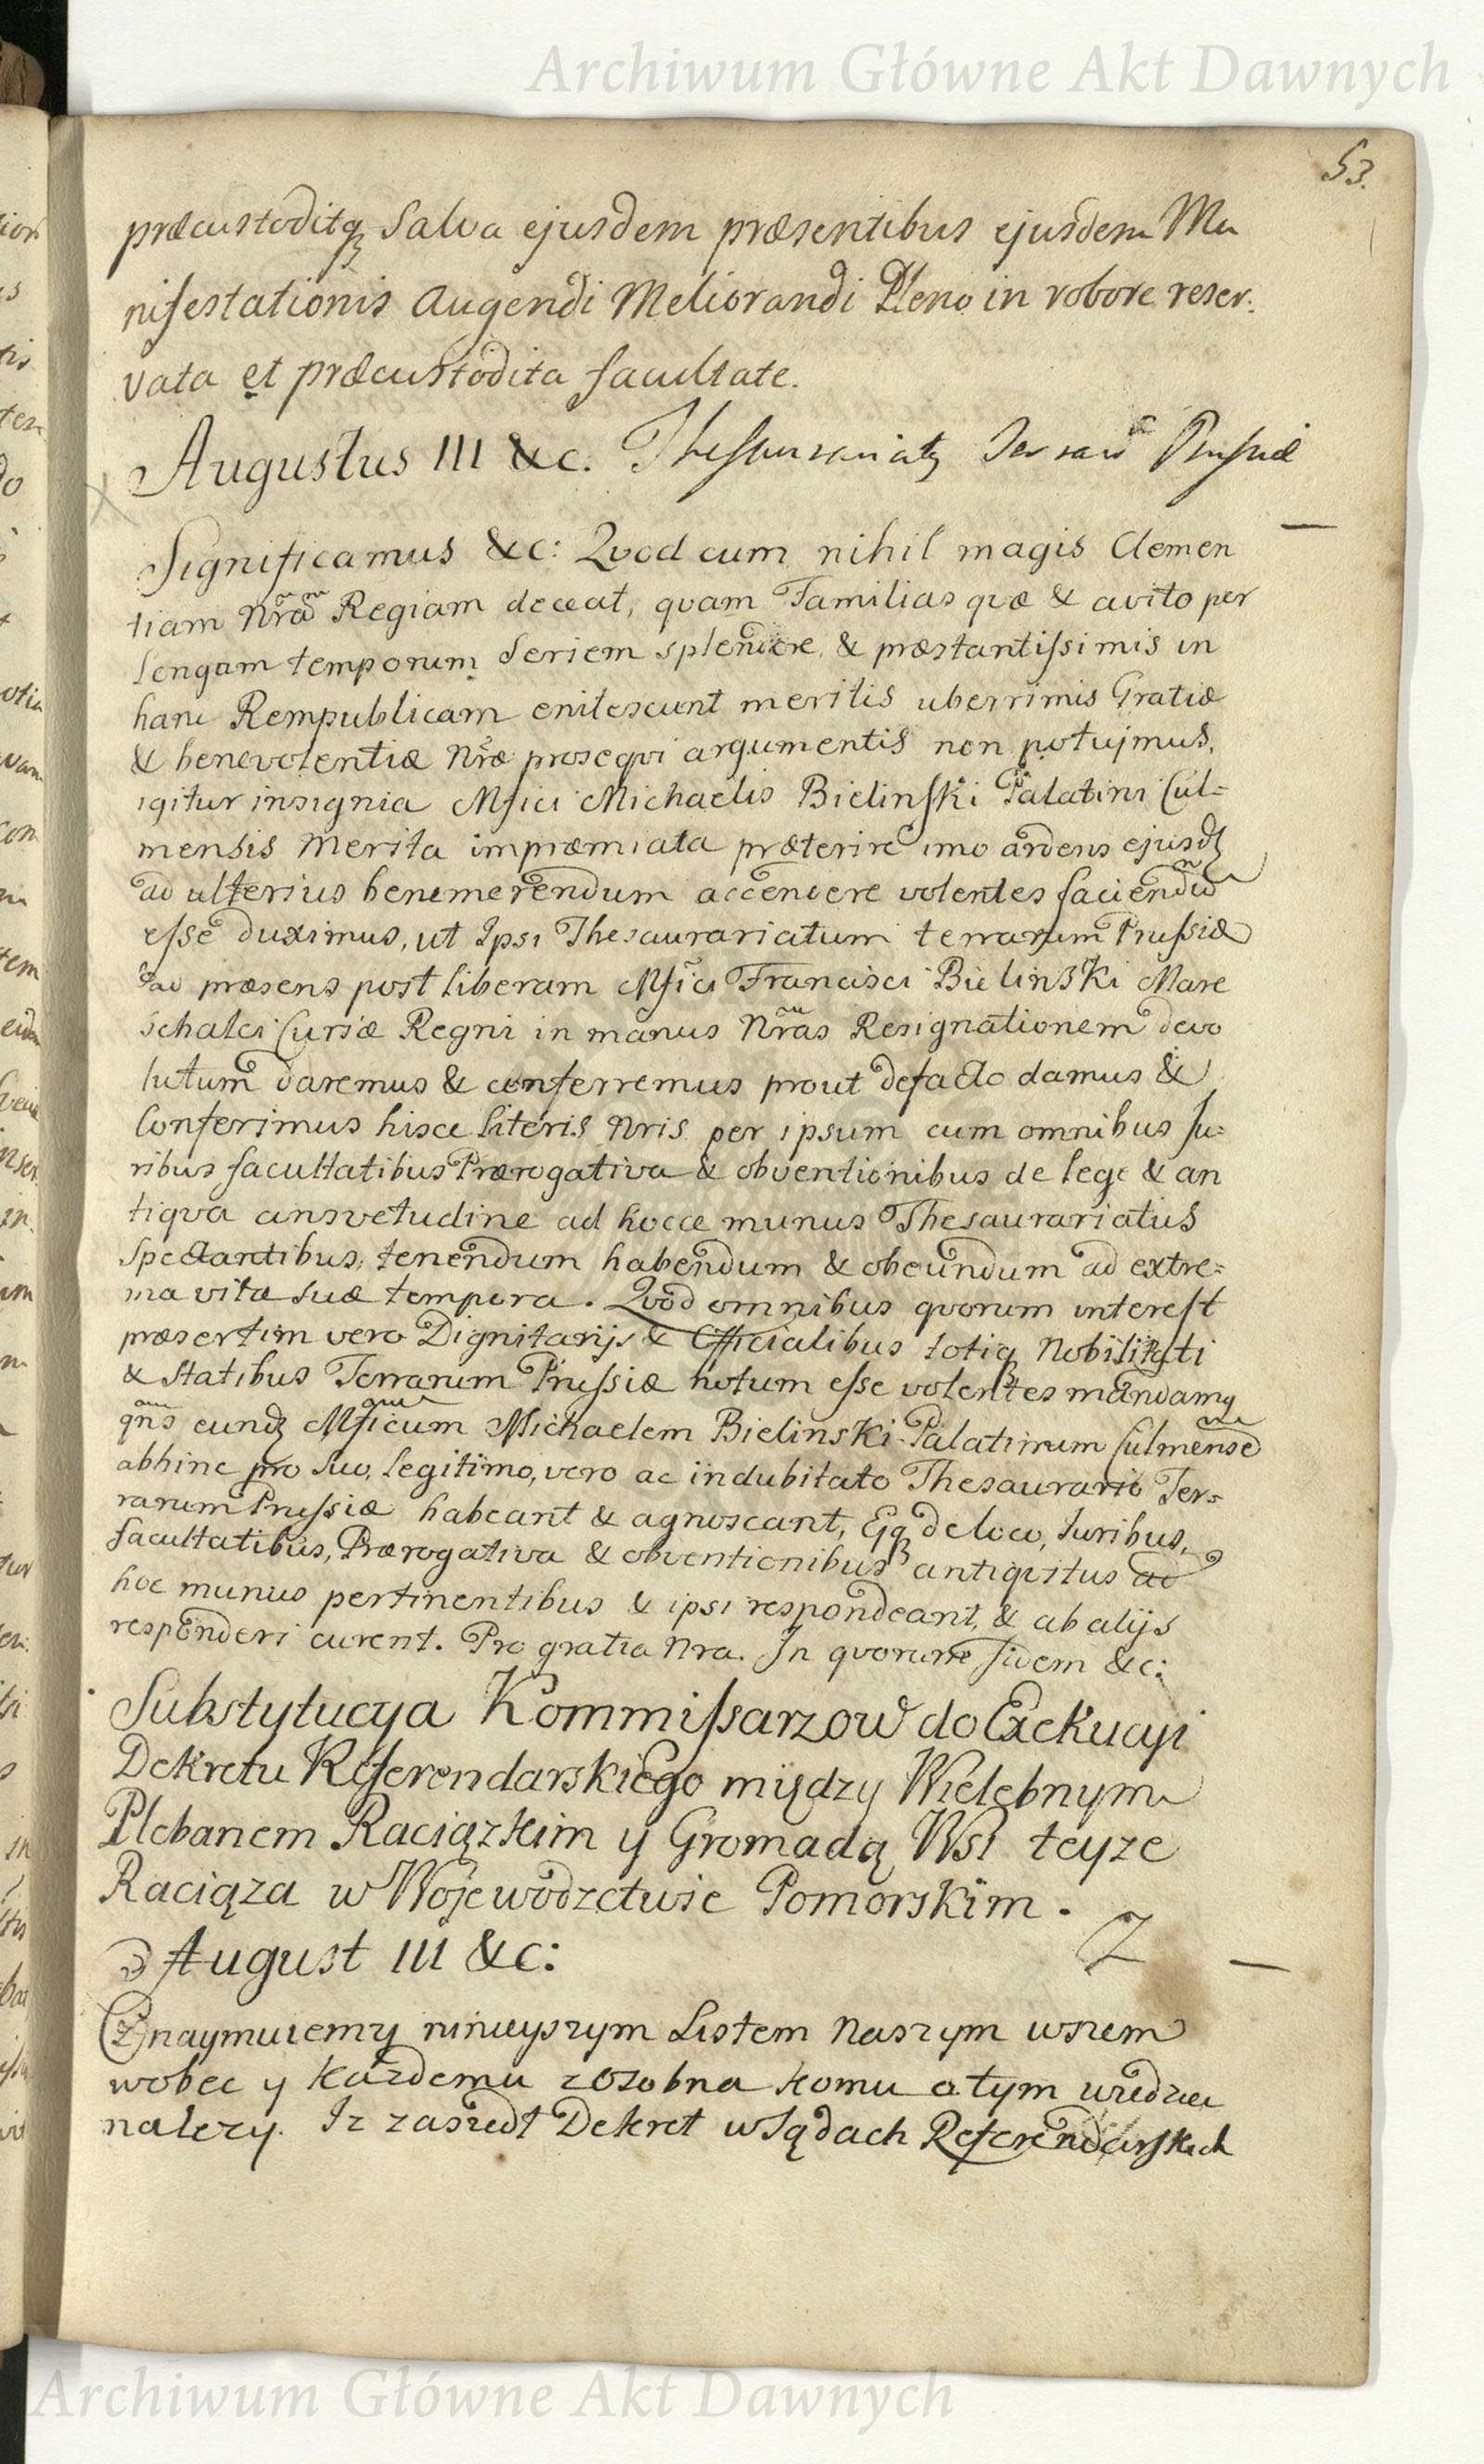 Archiwum Główne Akt Dawnych
53.
præcustoditq₃ Salva ejusdem præsentibus ejusdem Ma
nifestationis augendi Meliorandi Pleno in robore reser:
vata et præcustodita facultate.
Augustus III &c. Thesaurariatq₃ Terrarū Prussiæ
Significamus &c: Qvod cum nihil magis Clemen
tiam Nrã̃ Regiam deceat, quam Familias quæ & avito per
longam temporum Seriem splendore, & præstantissimis in
hanc Rempublicam enitescunt meritis uberrimis Gratiæ
& benevolentiæ Nræ proseqvi argumentis non potujmus,
igitur insignia Mfici Michaelis Bielinski Palatini Cul=
mensis Merita impræmiata præterire imo ardens ejusdꝫ
ad ulterius benemerendum accendere volentes faciendū
esse duximus, ut Ipsi Thesaurariatum terrarum Prussiæ
ad præsens post liberam Mfici Francisci Bielinski Mare
schalci Curiæ Regni in manus Nrãs Resignationem devo
lutum daremus & conferremus prout defacto damus &
Conferimus hisce literis Nris per ipsum cum omnibus Ju=
ribus facultatibus Prærogativa & obventionibus de lege & an
tiqva consvetudine ad hocce munus Thesaurariatus
Spectantibus, tenendum habendum & obeundum ad extre=
ma vitæ suæ tempora. Qvod omnibus qvorum interest
præsertim vero Dignitarijs & Officialibus totiq₃ Nobilitati
& Statibus Terrarum Prussiæ notum esse volentes mandamq
qñs eundꝫ Mficum Michaelem Bielinski Palatinum Culmensē
abhinc pro suo, legitimo, vero ac indubitato Thesaurario Ter=
rarum Prussiæ habeant & agnoscant, Ejq₃ de loco, Juribus,
facultatibus, Prærogativa & obventionibus antiqvitus ad
hoc munus pertinentibus & ipsi respondeant, & ab alijs
responderi curent. Pro gratia Nra. In qvorum fidem &c:
Substytucya Kommissarzow do Exekucyi
Dekretu Referendarskiego między Wielebnym
Plebanem Raciązkim y Gromadą Wsi teyze
Raciąza w Wojewodzctwie Pomorskim.
August III &c:
Oznaymuiemy ninieyszym Listem Naszym wszem
wobec y każdemu zosobna komu o tym wiedziec
nalezy. Iz zaszedł Dekret w Sądach Referendarskich
Archiwum Główne Akt Dawnych